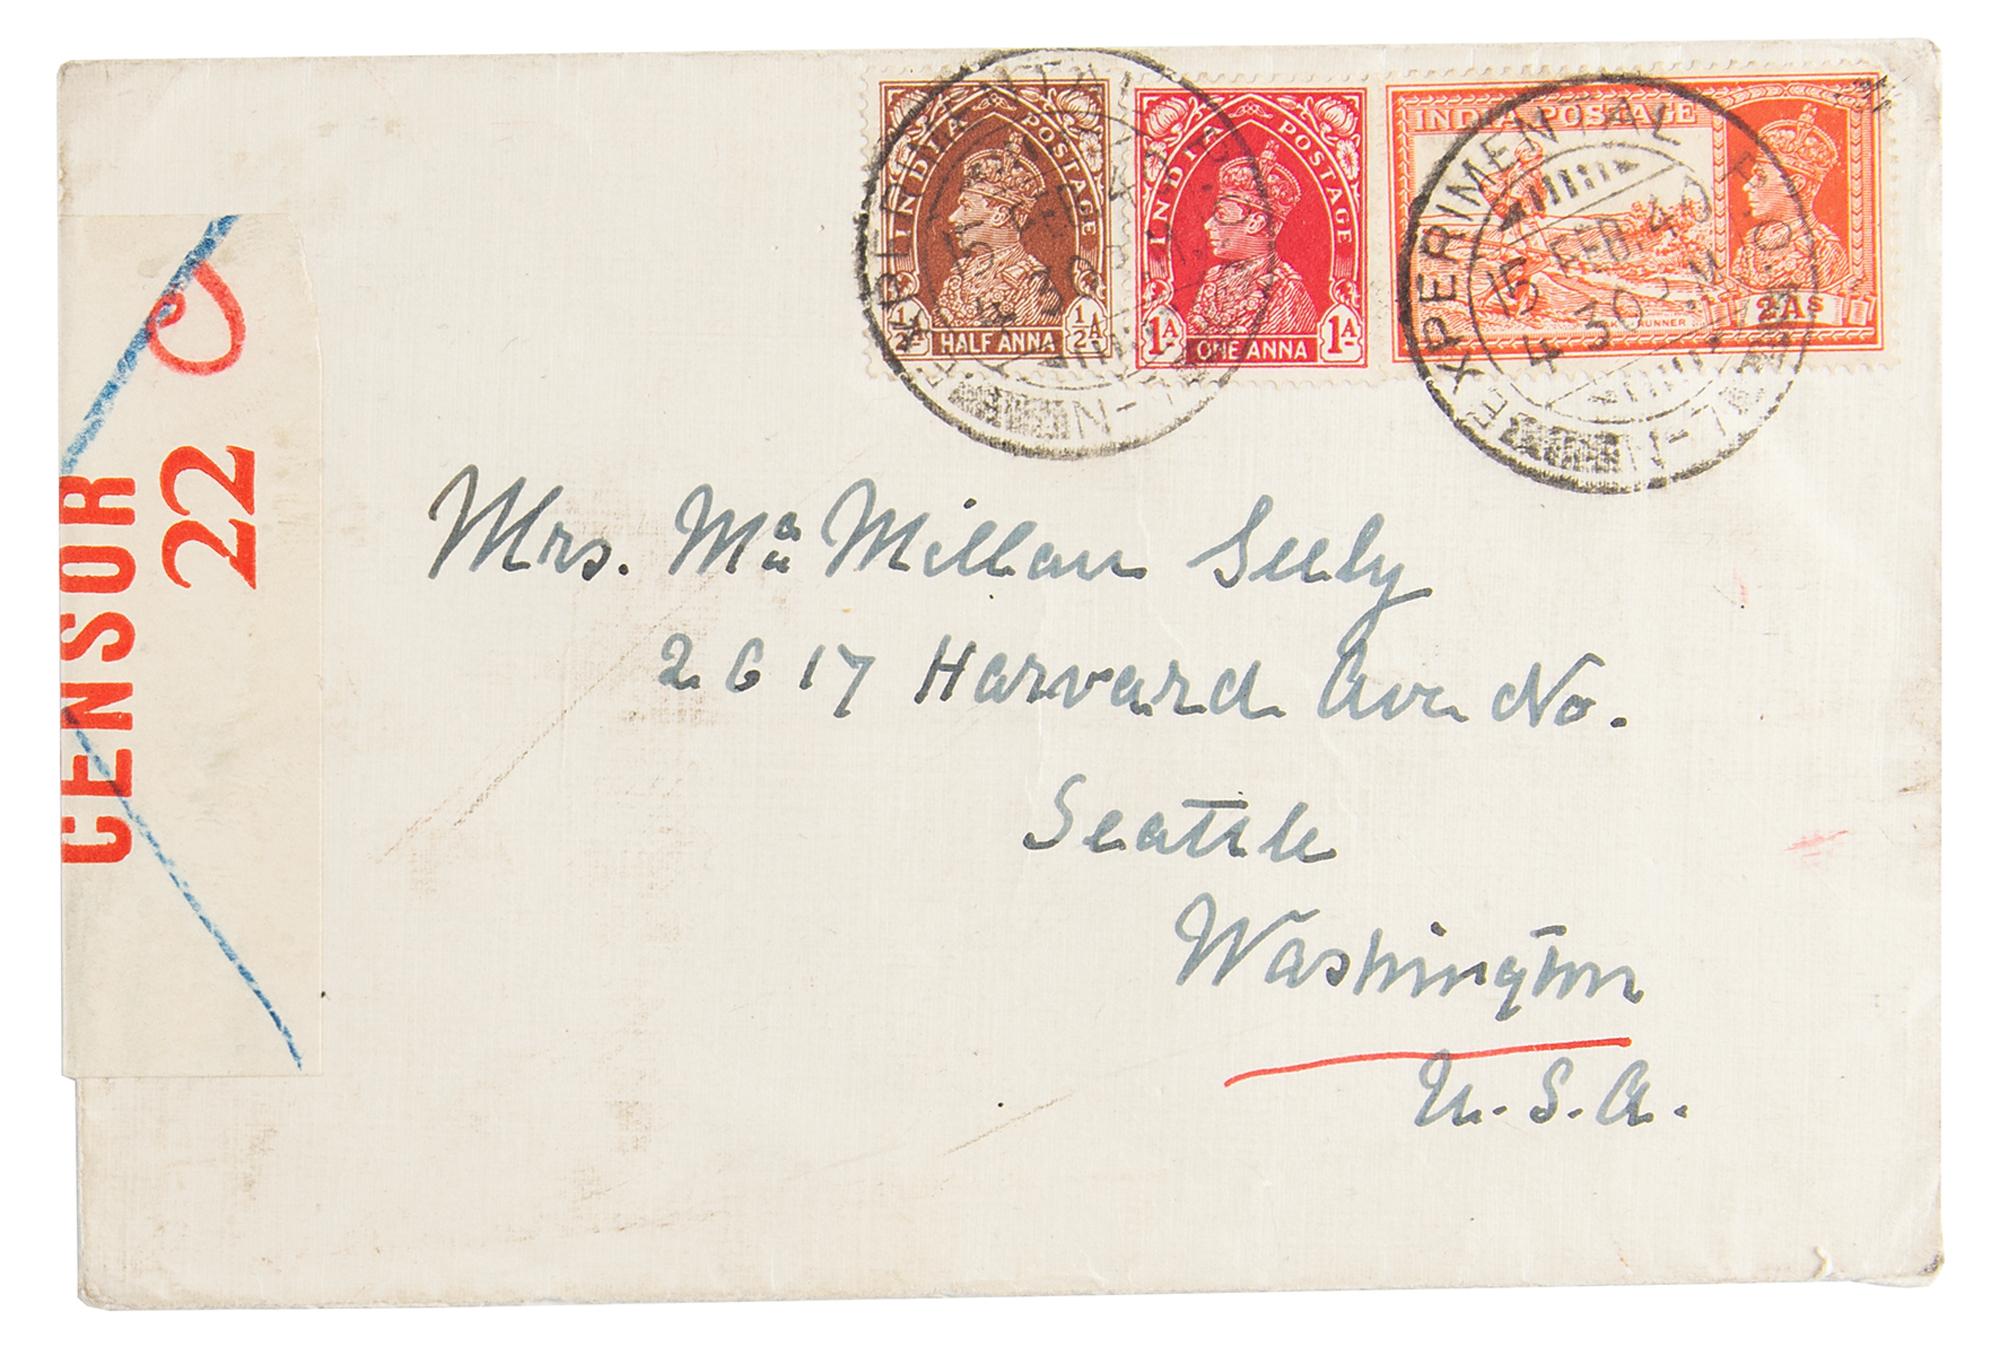 INDIA POSTAGE
½A HALF ANNA ½A
INDIA POSTAGE
1A ONE ANNA 1A
INDIA POSTAGE
RUNNER
2As
EXPERIMENTAL P.O.
N-7
15 FEB. 40
4 30 PM
N-7
CENSOR
22
Mrs. Mc Millan Seely
2617 Harvard Ave No.
Seattle
Washington
U.S.A.